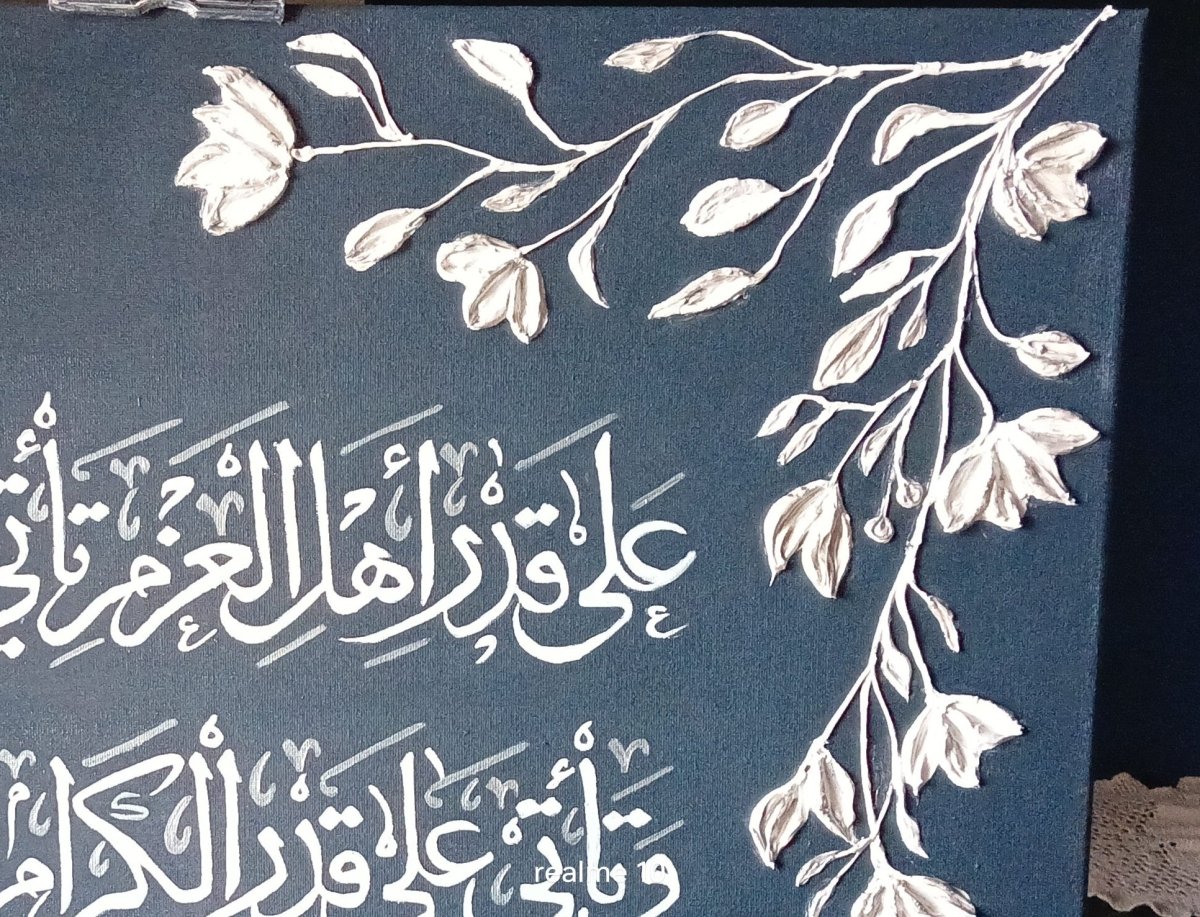 عَلَى قَدْرِ أَهْلِ الْعَزْمِ تَأْتِي
وَتَأْتِي عَلَى قَدْرِ الْكِرَامِ
realme 10